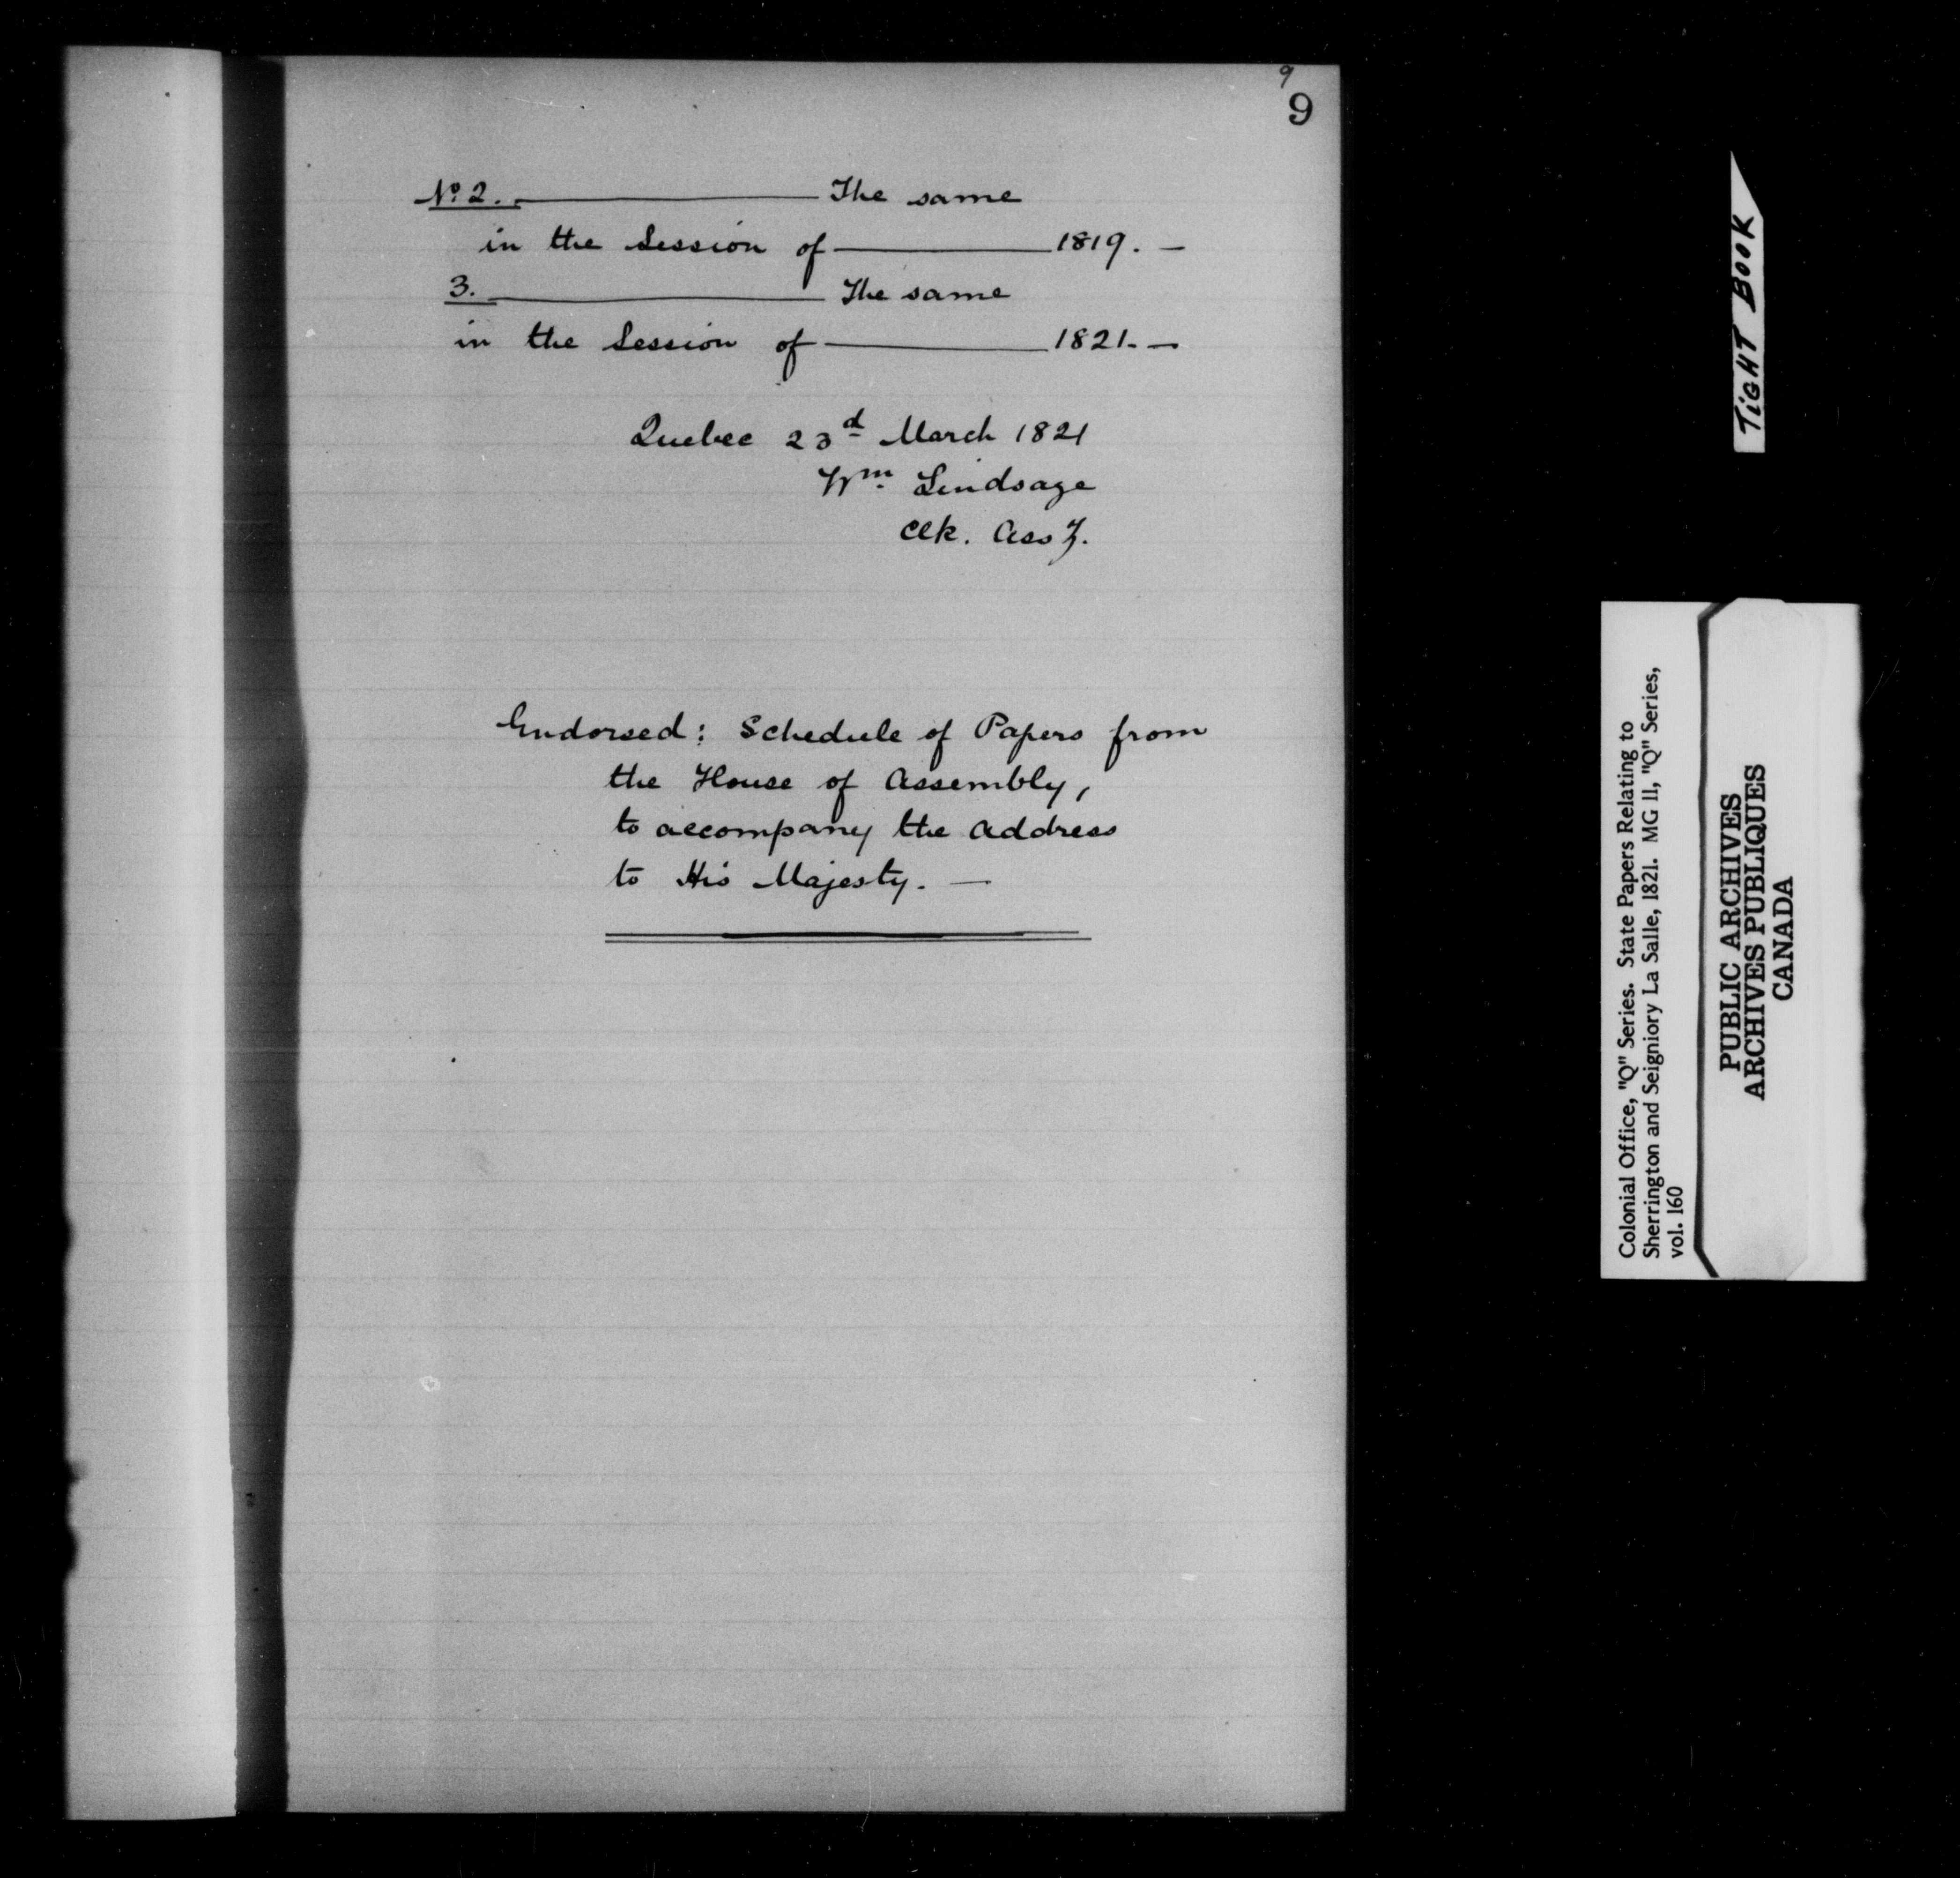 9
9
No. 2. ——— The same
in the Session of ——— 1819. —
3. ——— The same
in the Session of ——— 1821. —
Quebec 23d March 1821
Wm. Lindsage
Clk. Ass y.
Endorsed: Schedule of Papers from
the House of Assembly,
to accompany the Address
to His Majesty. —
TIGHT BOOK
Colonial Office, "Q" Series. State Papers Relating to
Sherrington and Seigniory La Salle, 1821. MG 11, "Q" Series,
vol. 160
PUBLIC ARCHIVES
ARCHIVES PUBLIQUES
CANADA